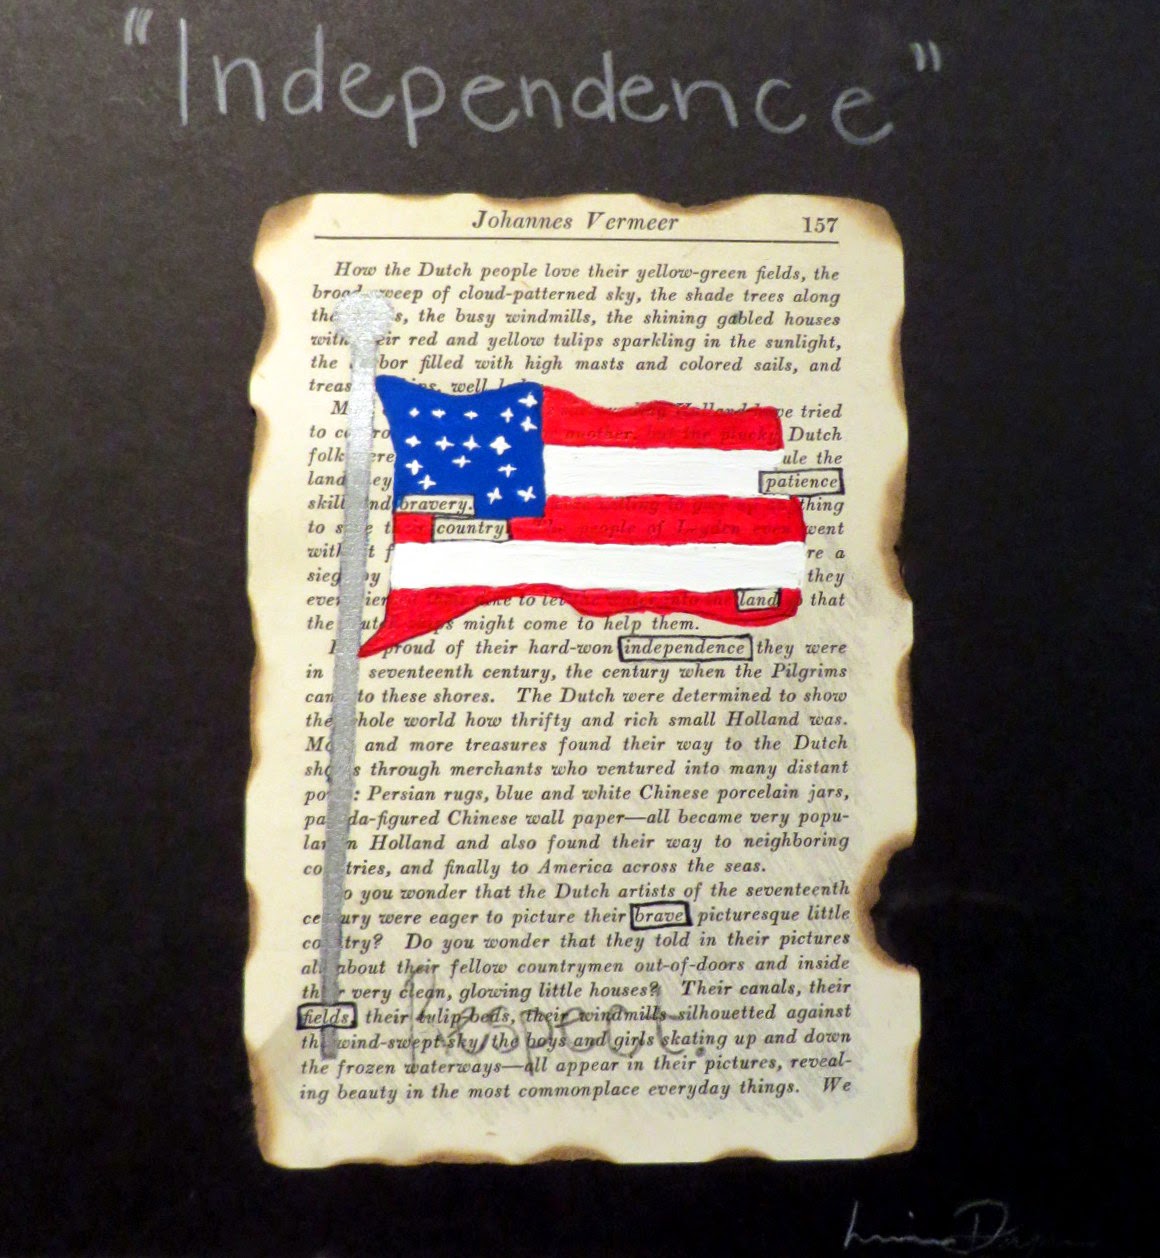 "Independence"
Johannes Vermeer 157
How the Dutch people love their yellow-green fields, the
sweep of cloud-patterned sky, the shade trees along
the busy windmills, the shining gabled houses
red and yellow tulips sparkling in the sunlight,
the filled with high masts and colored sails, and
well
Holland tried
to another, but the plucky Dutch
folk the
land patience
skill and bravery. willing to give up anything
to country The people of Leyden even went
a
they
to let the into the land so that
the might come to help them.
proud of their hard-won independence they were
in seventeenth century, the century when the Pilgrims
to these shores. The Dutch were determined to show
the whole world how thrifty and rich small Holland was.
and more treasures found their way to the Dutch
through merchants who ventured into many distant
: Persian rugs, blue and white Chinese porcelain jars,
da-figured Chinese wall paper—all became very popu-
in Holland and also found their way to neighboring
tries, and finally to America across the seas.
o you wonder that the Dutch artists of the seventeenth
century were eager to picture their brave picturesque little
country? Do you wonder that they told in their pictures
all about their fellow countrymen out-of-doors and inside
their very clean, glowing little houses? Their canals, their
fields, their tulip-beds, their windmills silhouetted against
the wind-swept sky, the boys and girls skating up and down
Respect.
the frozen waterways—all appear in their pictures, reveal-
ing beauty in the most commonplace everyday things. We